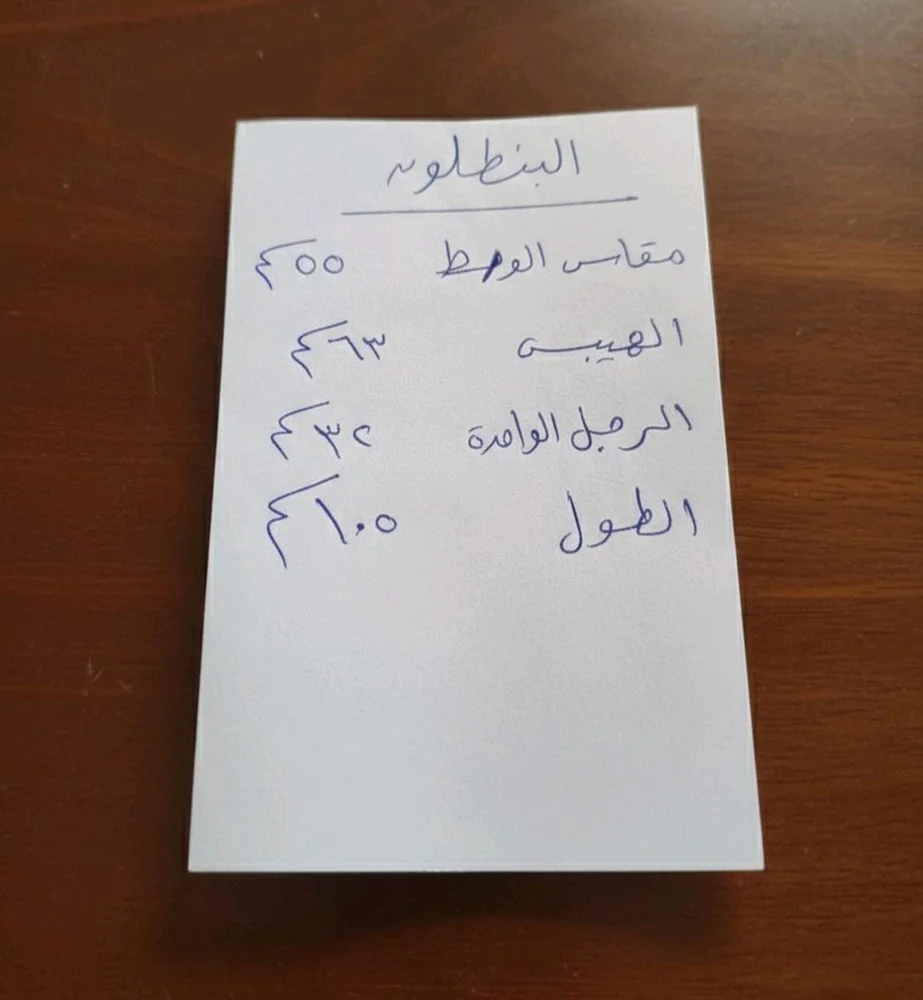 البنطلون
مقاس الوسط ٥٥ كم
الهيبس ٦٣ كم
الرجل الواحدة ٣٢ كم
الطول ١٠٥ كم